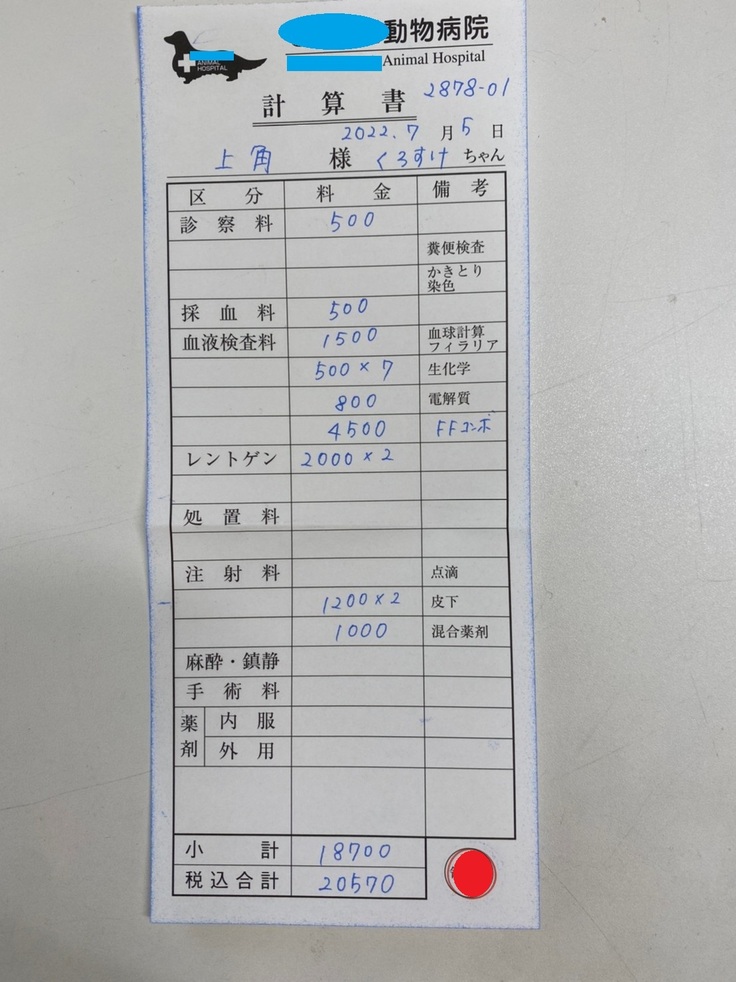 動物病院
ANIMAL
HOSPITAL
Animal Hospital
2878-01
計算書
2022.7月5日
上角 様 くろすけ ちゃん
区分 料金 備考
診察料 500
糞便検査
かきとり
染色
採血料 500
血液検査料 1500 血球計算
フィラリア
500×7 生化学
800 電解質
4500 FFコンボ
レントゲン 2000×2
処置料
注射料 点滴
1200×2 皮下
1000 混合薬剤
麻酔・鎮静
手術料
薬剤 内服
外用
小計 18700
税込合計 20570